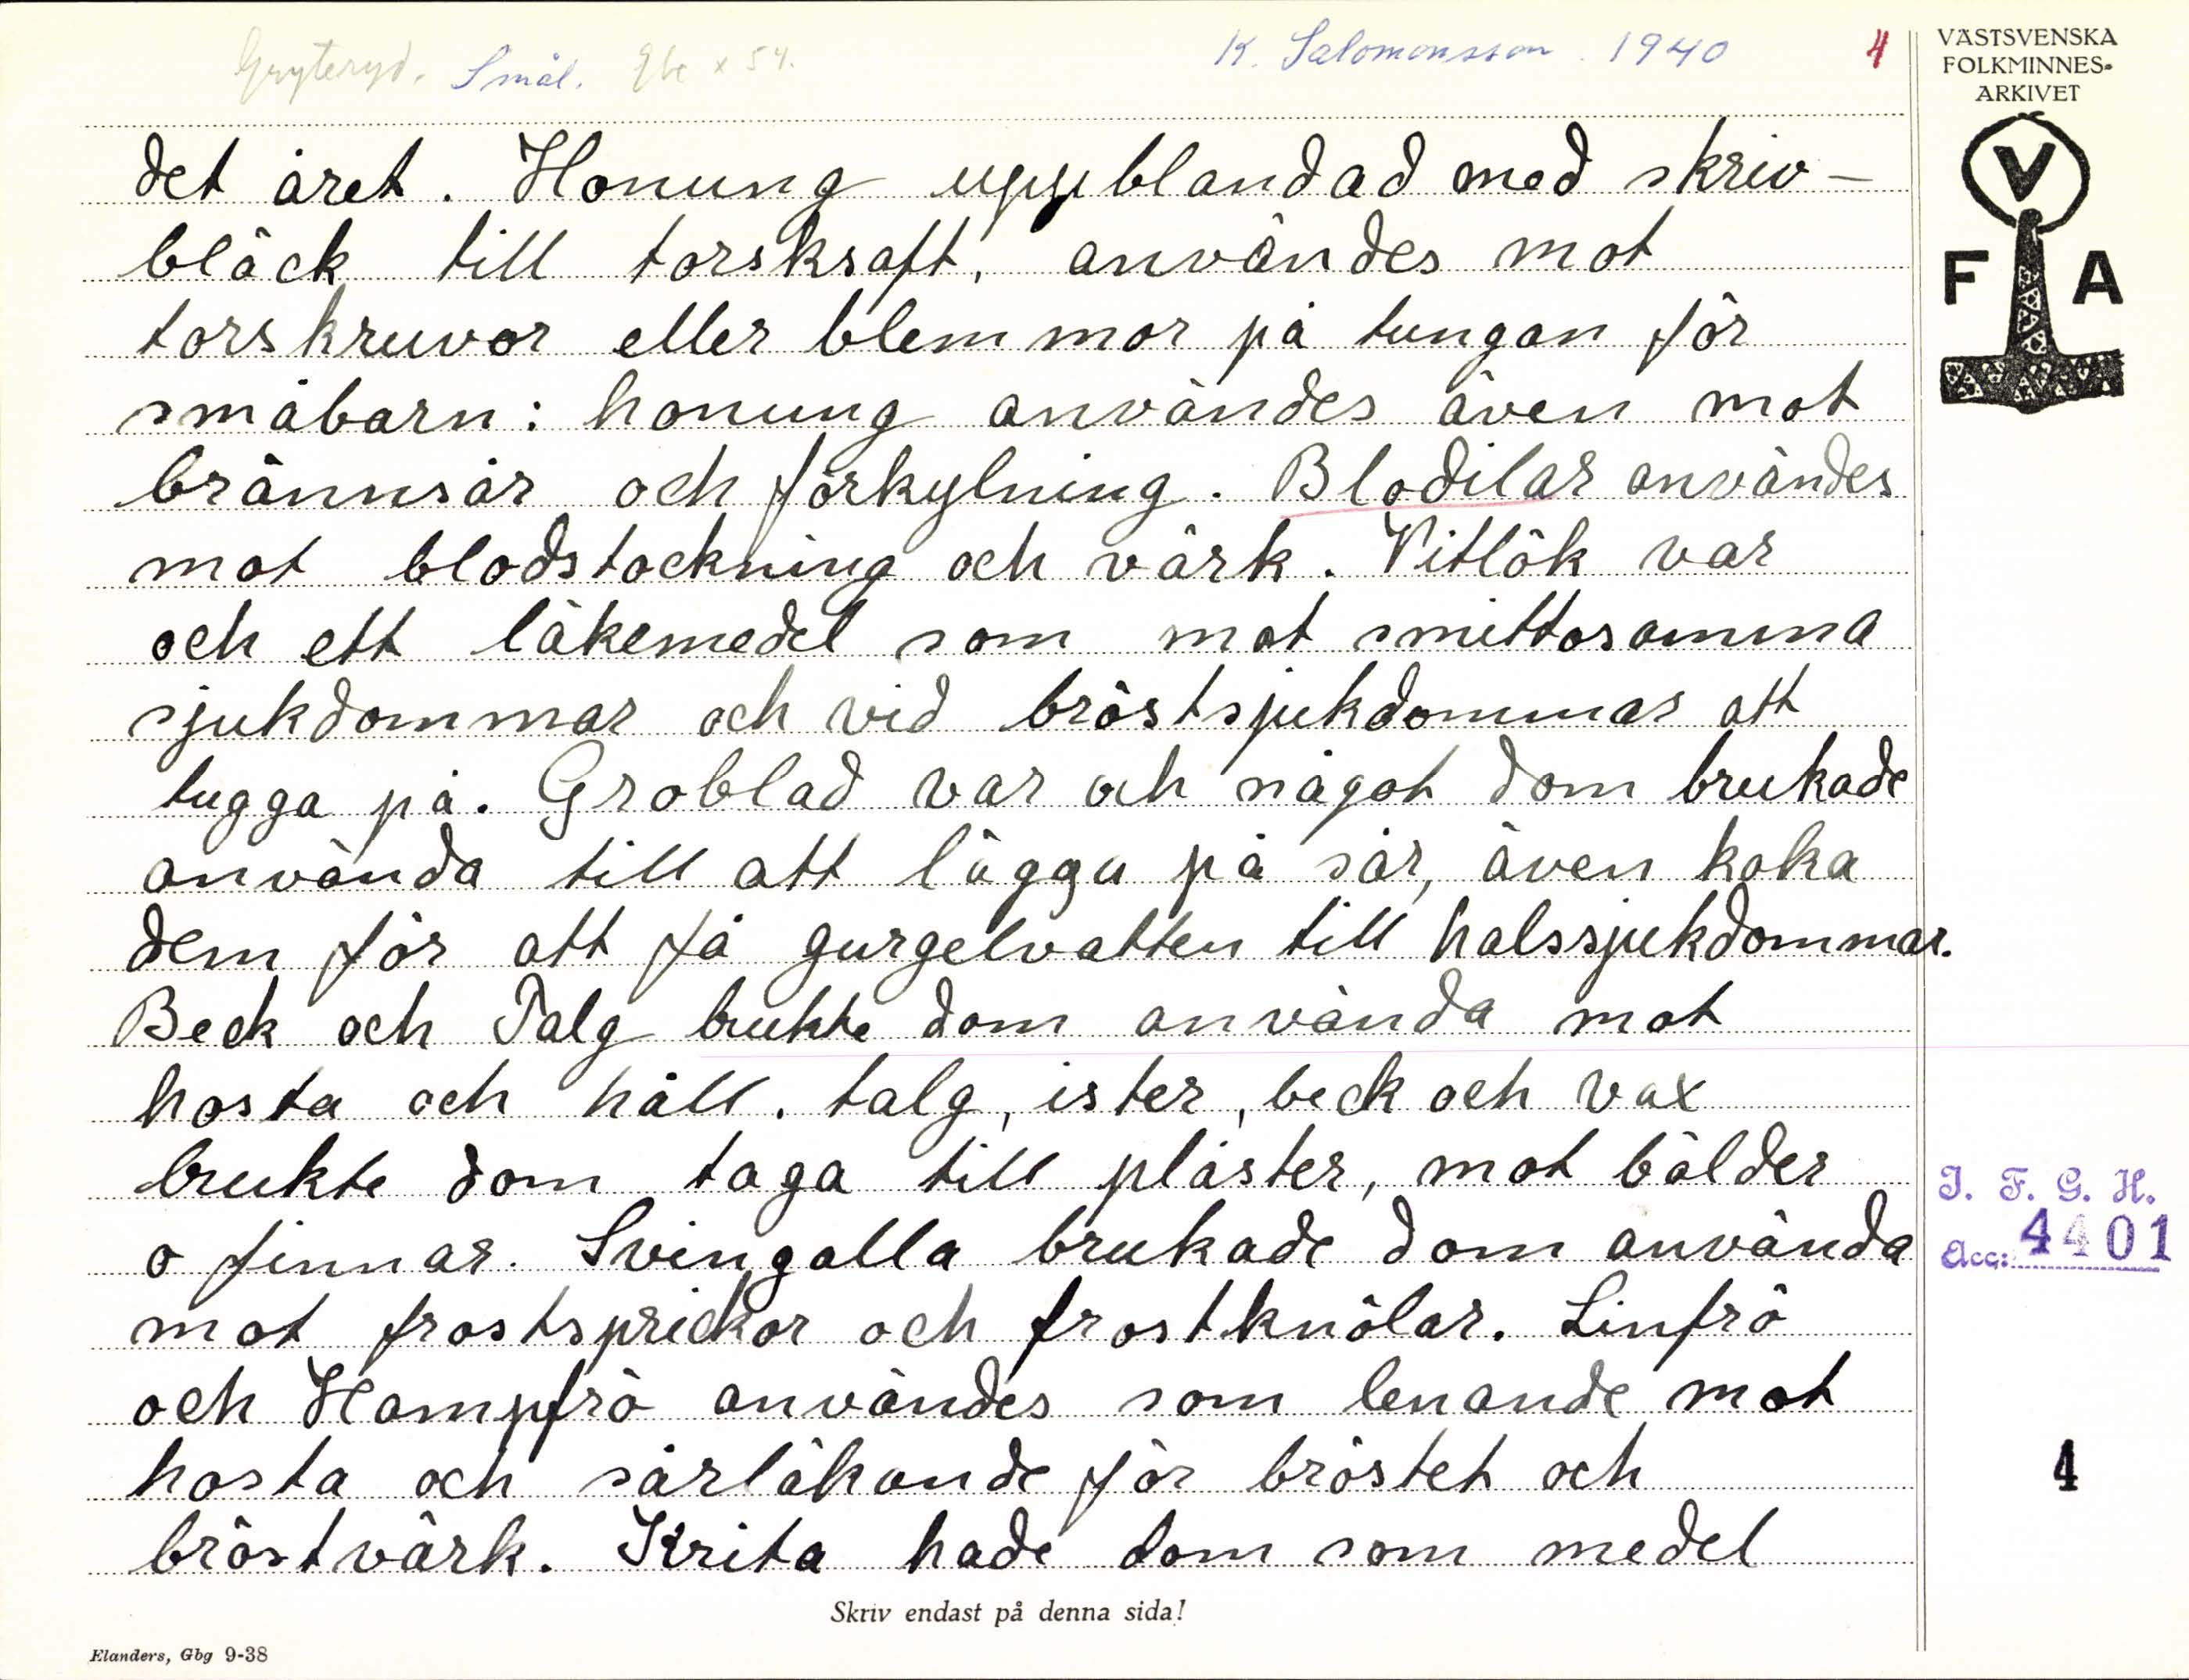 Gryteryd. Smål. K. Salomonsson. 1940 4
VÄSTSVENSKA
FOLKMINNES-
ARKIVET
V
F A
det året. Honung uppblandad med skriv-
bläck till torsksaft, användes mot
torskruvor eller blemmor på tungan för
småbarn: honung användes även mot
brännsår och förkylning. Blodilar användes
mot blodstockning och värk. Vitlök var
och ett läkemedel som mot smittosamma
sjukdommar och vid bröstsjukdommar att
tugga på. Groblad var och något dom brukade
använda till att lägga på sår, även koka
dem för att få gurgelvatten till halssjukdommar.
Beck och Talg brukte dom använda mot
hosta och håll. talg, ister, beck och vax
brukte dom taga till plåster, mot bölder
o finnar. Svingalla brukade dom använda
mot frostsprickor och frostknölar. Linfrö
och Hampfrö användes som lenande mot
hosta och sårläkande för bröstet och
bröstvärk. Krita hade dom som medel
I. F. G. H.
Acc: 4401
4
Skriv endast på denna sida!
Elanders, Gbg 9-38